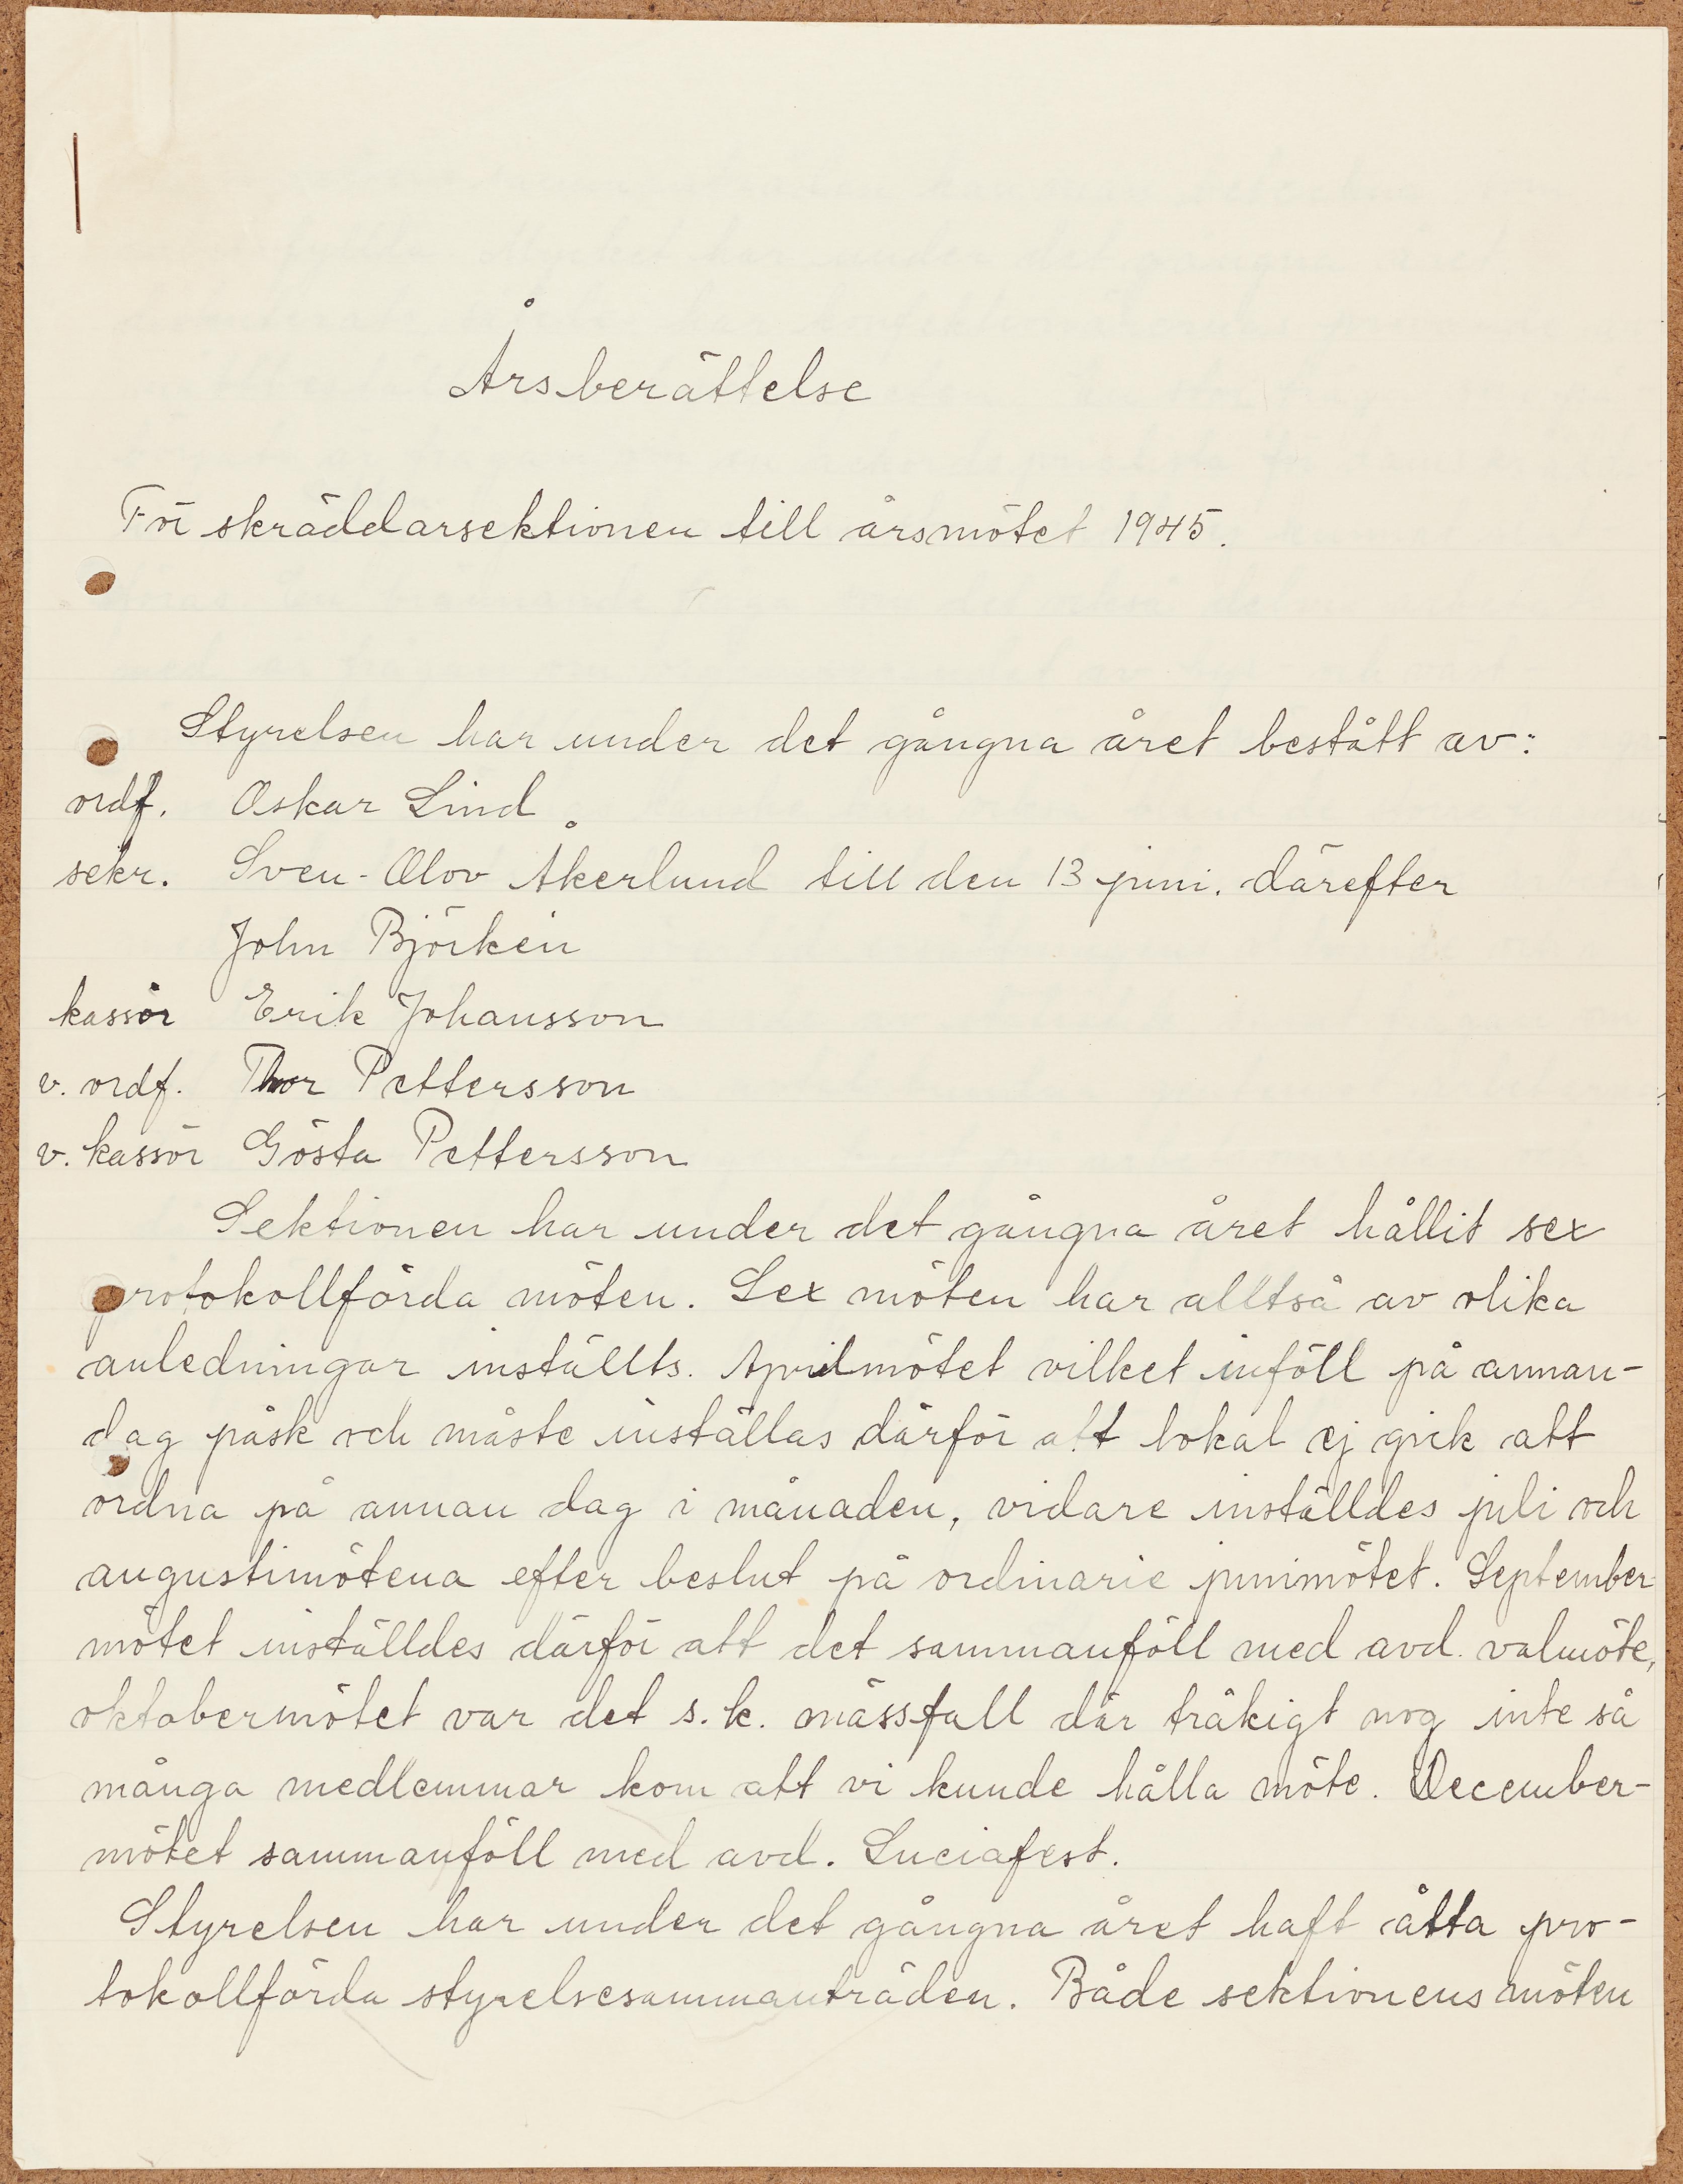 Årsberättelse
För skräddarsektionen till årsmötet 1945.
Styrelsen har under det gångna året bestått av:
ordf. Oskar Lind
sekr. Sven-Olov Åkerlund till den 13 juni. därefter
John Björkén
kassör Erik Johansson
v. ordf. Thor Pettersson
v. kassör Gösta Pettersson
Sektionen har under det gångna året hållit sex
protokollförda möten. Sex möten har alltså av olika
anledningar inställts. Aprilmötet vilket inföll på annan-
dag påsk och måste inställas därför att lokal ej gick att
ordna på annan dag i månaden, vidare inställdes juli och
augustimötena efter beslut på ordinarie junimötet. September-
mötet inställdes därför att det sammanföll med avd. valmöte,
oktobermötet var det s.k. mässfall där tråkigt nog inte så
många medlemmar kom att vi kunde hålla möte. December-
mötet sammanföll med avd. Luciafest.
Styrelsen har under det gångna året haft åtta pro-
tokollförda styrelsesammanträden. Både sektionens möten